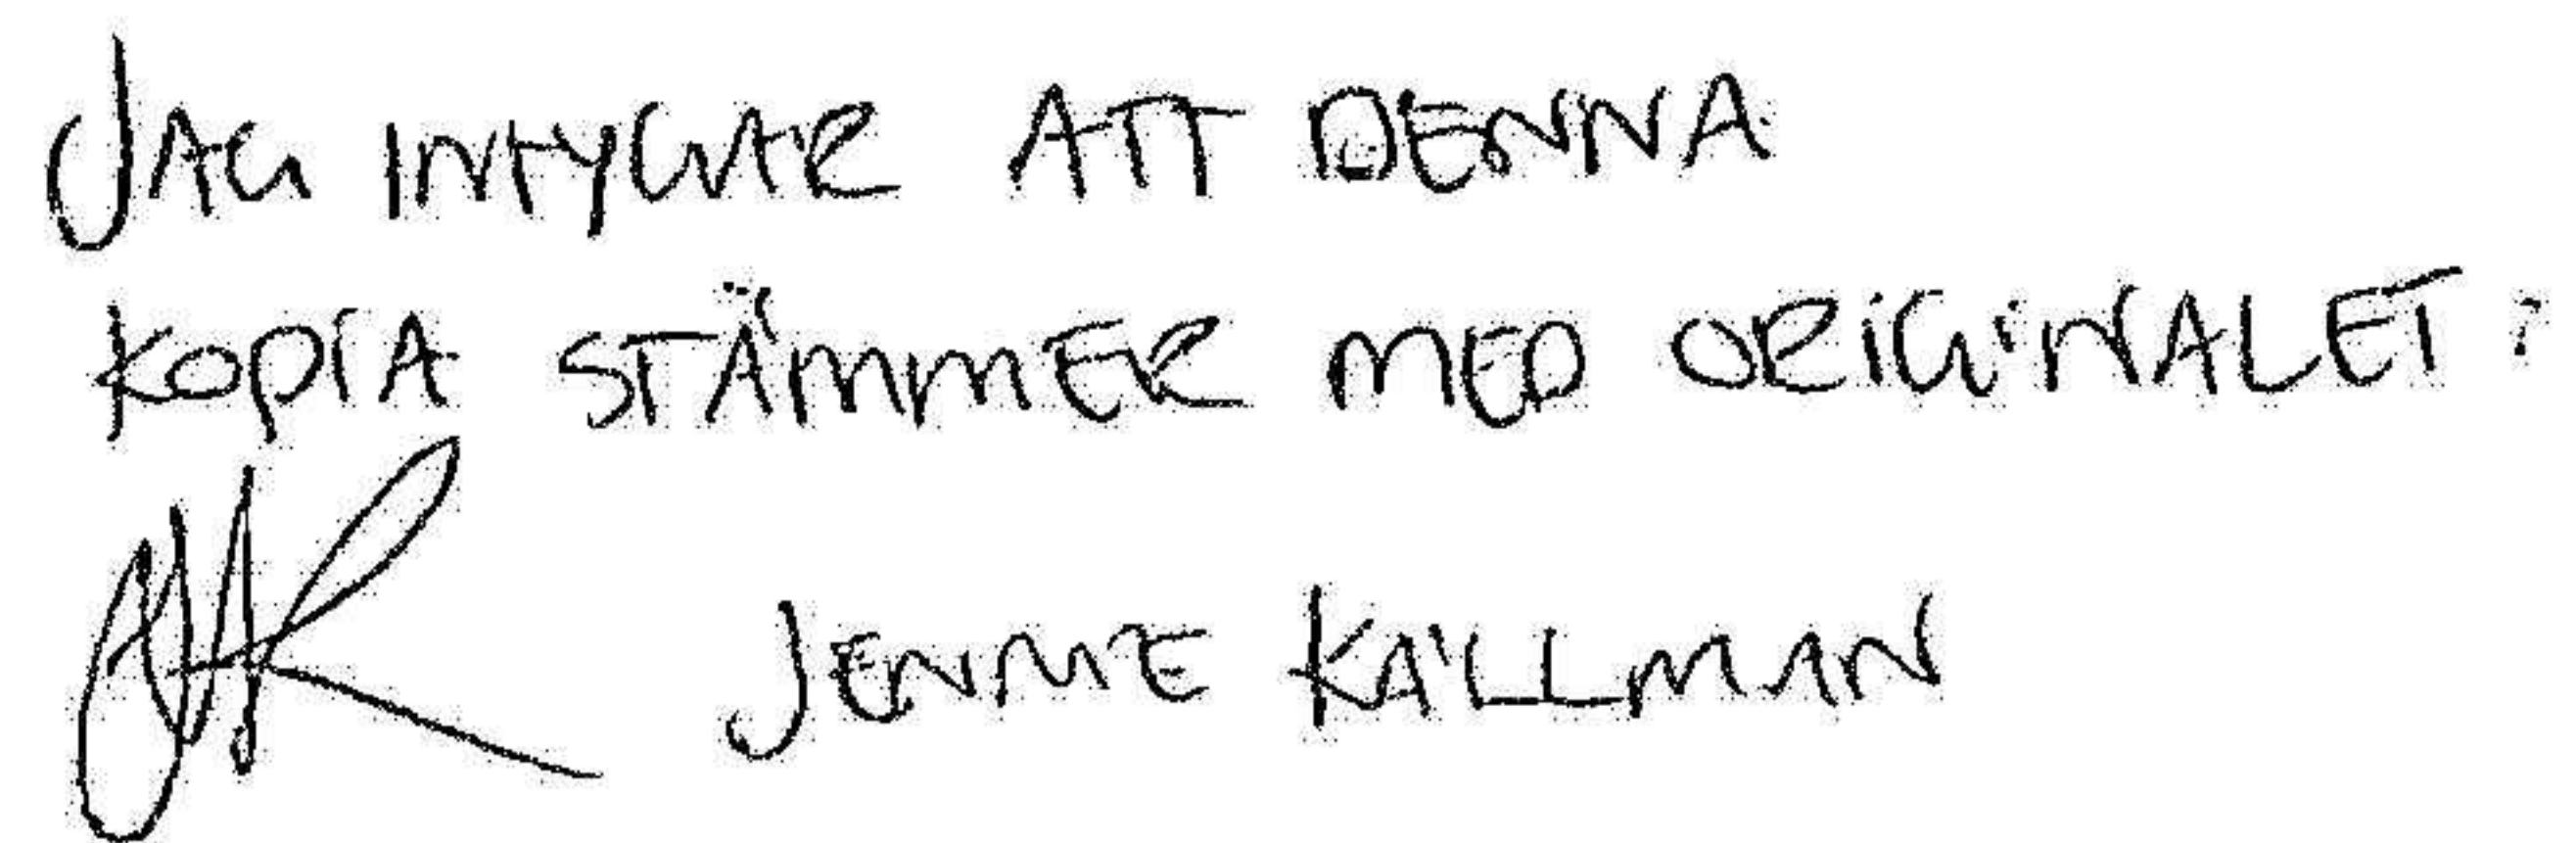 JAG INTYGAR ATT DENNA
KOPIA STÄMMER MED ORIGINALET
JENNIE KÄLLMAN